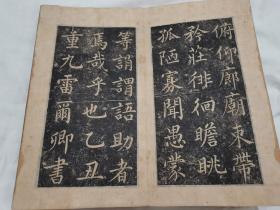 俯仰廊廟束帶
矜莊徘徊瞻眺
孤陋寡聞愚蒙
等誚謂語助者
焉哉乎也乙丑
重九雷爾卿書